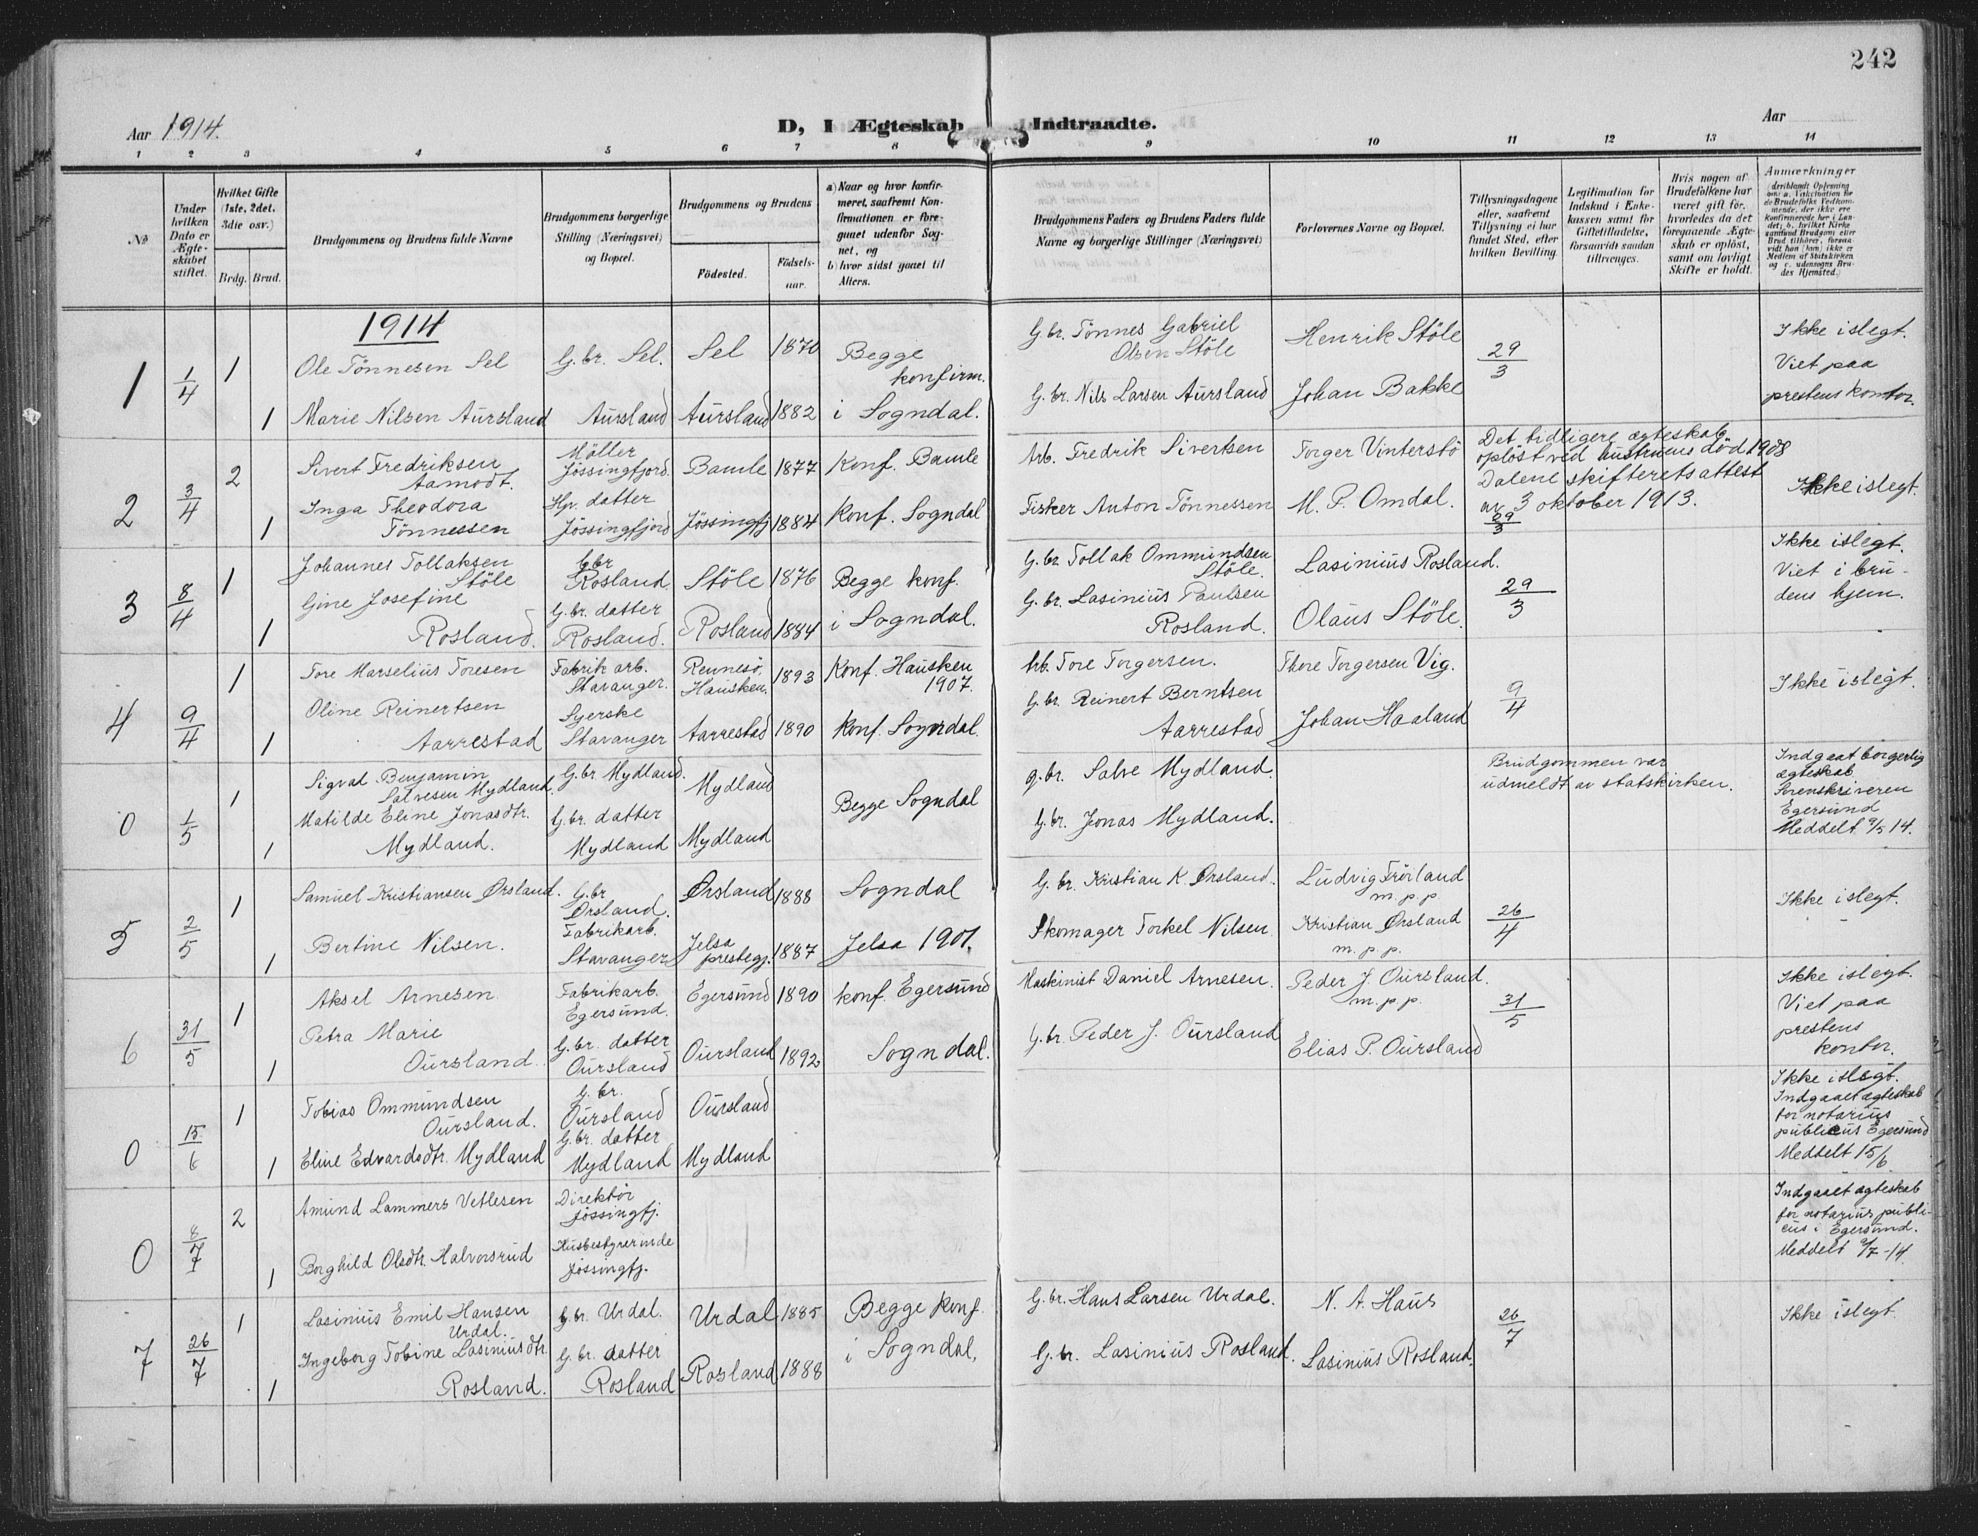 242
Aar 1914.
D, I Ægteskab Indtraadte.
Aar
1 2 3 4 5 6 7 8 9 10 11 12 13 14
No
Under hvilken Dato er Ægteskabet stiftet.
Hvilket Gifte (1ste, 2det, 3die osv.)
Brdg. Brud.
Brudgommens og Brudens fulde Navne
Brudgommens borgerlige Stilling (Næringsvei) og Bopæl.
Brudgommens og Brudens
Födested.
Födselsaar.
a) Naar og hvor konfirmeret, saafremt Konfirmationen er foregaaet udenfor Sognet, og
b) hvor sidst gaaet til Alters.
Brudgommens Faders og Brudens Faders fulde Navne og borgerlige Stillinger (Næringsvei)
Forlovernes Navne og Bopæl.
Tillysningsdagene eller, saafremt Tillysning ei har fundet Sted, efter hvilken Bevilling.
Legitimation for Indskud i Enkekassen samt for Giftetilladelse, forsaavidt saadan tiltrænges.
Hvis nogen af Brudefolkene har været gift før, hvorledes da det foregaaende Ægteskab er opløst, samt om lovligt Skifte er holdt.
Anmærkninger
(deriblandt Oplysning om: a. Vakcination for de Brudefolks Vedkommende, der ikke ere Konfirmerede her i Landet; b. hvilket Kirkesamfund Brudgom eller Brud tilhører, forsaavidt han (hun) ikke er Medlem af Statskirken og c. udensogns Brudes Hjemsted.)
1914
1 1/4 1 Ole Tönnesen Sel G.br. Sel. Sel 1870 Begge konfirm. G.br. Tönnes Gabriel Olsen Stöle Henrik Stöle 29/3 Ikke i slegt. Viet paa prestens kontor.
1 Marie Nilsen Aursland Aursland Aursland 1882 i Sogndal. G.br. Nils Larsen Aursland Johan Bakke
2 3/4 2 Sivert Fredriksen Aamodt. Möller Jössingfjord. Bamle 1877 Konf. Bamle Arb. Fredrik Sivertsen Torger Vinterstö Det tidligere ægteskab opløst ved hustruens död 1908 Dalene skifterets attest av 3 oktober 1913. Ikke i slegt.
1 Inga Theodora Tönnessen Hp. datter Jössingfjord Jössingfj. 1884 Konf. Sogndal Fisker Anton Tönnessen M. P. Omdal. 29/3
3 8/4 1 Johannes Tollaksen Stöle G.br Rosland Stöle 1876 Begge konf. G.br. Tollak Ommundsen Stöle. Lasinius Rosland. 29/3 Ikke i slegt. Viet i brudens hjem.
1 Gine Josefine Rosland. G.br. datter Rosland. Rosland 1884 i Sogndal. G.br. Lasinius Paulsen Rosland. Olaus Stöle.
4 9/4 1 Tore Marselius Toresen Fabrik arb. Stavanger. Rennesö, Hausken. 1893 Konf. Hausken 1907. Arb. Tore Torgersen. Thore Torgersen Vig. 9/4 Ikke i slegt.
1 Oline Reinertsen Aarrestad Syerske Stavanger Aarrestad 1890 Konf. Sogndal. G.br. Reinert Berntsen Aarrestad Johan Haaland
0 1/5 1 Sigvald Benjamin Salvesen Mydland. G.br Mydland. Mydland Begge Sogndal g.br. Salve Mydland. Brudgommen var udmeldt av statskirken. Indgaat borgerlig ægteskab Sorenskriveren Egersund Meddelt 9/5 14.
1 Matilde Eline Jonasdtr. Mydland. G.br. datter Mydland Mydland G.br. Jonas Mydland.
5 2/5 1 Samuel Kristiansen Ørsland. G.br Ørsland. Ørsland 1888 Sogndal G.br. Kristian K. Ørsland. Ludvig Fröiland m.p.p 26/4 Ikke i slegt.
1 Bertine Nilsen. Fabrikarb. Stavanger Jelsa prestegj. 1887 Jelsa 1901. Skomager Torkel Nilsen Kristian Ørsland m.p.p.
6 31/5 1 Aksel Arnesen Fabrikarb. Egersund. Egersund 1890 Konf. Egersund Maskinist Daniel Arnesen. Peder J. Oursland. m.p.p. 31/5 Ikke i slegt. Viet paa prestens kontor.
1 Petra Marie Oursland G.br. datter Oursland Oursland 1892 Sogndal. G.br. Peder J. Oursland Elias P. Oursland
0 15/6 1 Tobias Ommundsen Oursland. G.br. Oursland Oursland Ikke i slegt. Indgaaet ægteskab for notarius publicus Egersund Meddelt 15/6
1 Eline Edvardsdtr. Mydland G.br. datter Mydland Mydland
0 8/7 2 Amund Lammers Vetlesen Direktör Jössingfj. Indgaaet ægteskab for notarius publicus i Egersund. Meddelt 9/7-14
1 Borghild Olsdtr. Halvorsrud Husbestyrerinde Jössingfj.
7 26/7 1 Lasinius Emil Hansen Urdal. G.br. Urdal. Urdal 1885 Begge konf. G.br. Hans Larsen Urdal. N. A. Haus 26/7 Ikke i slegt
1 Ingeborg Tobine Lasiniusdtr Rosland. G.br. datter Rosland Rosland 1888 i Sogndal. G.br. Lasinius Rosland. Lasinius Rosland.